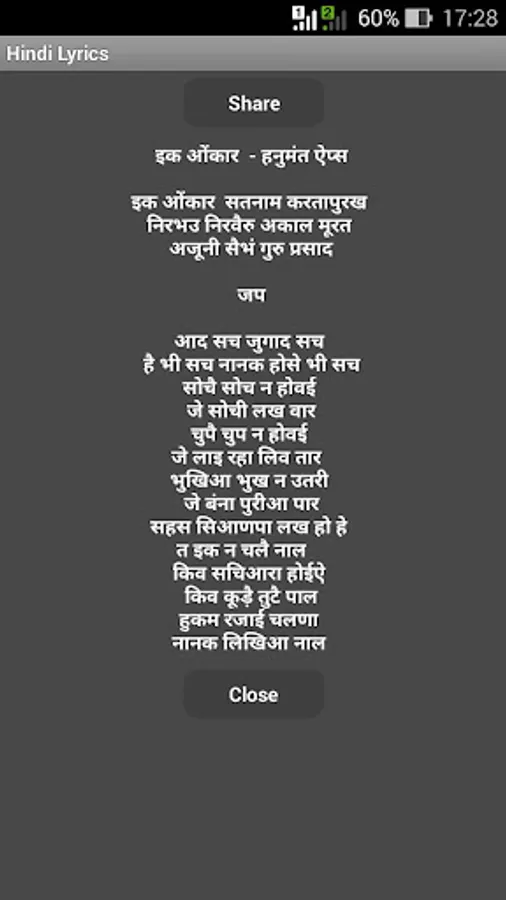 1 2 60% 17:28
Hindi Lyrics
Share
इक ओंकार - हनुमंत ऐप्स
इक ओंकार सतनाम करतापुरख
निरभउ निरवैरु अकाल मूरत
अजूनी सैभं गुरु प्रसाद
जप
आद सच जुगाद सच
है भी सच नानक होसे भी सच
सोचै सोच न होवई
जे सोची लख वार
चुपै चुप न होवई
जे लाइ रहा लिव तार
भुखिआ भुख न उतरी
जे बंना पुरीआ पार
सहस सिआणपा लख हो हे
त इक न चलै नाल
किव सचिआरा होईऐ
किव कूड़ै तुटै पाल
हुकम रजाई चलणा
नानक लिखिआ नाल
Close